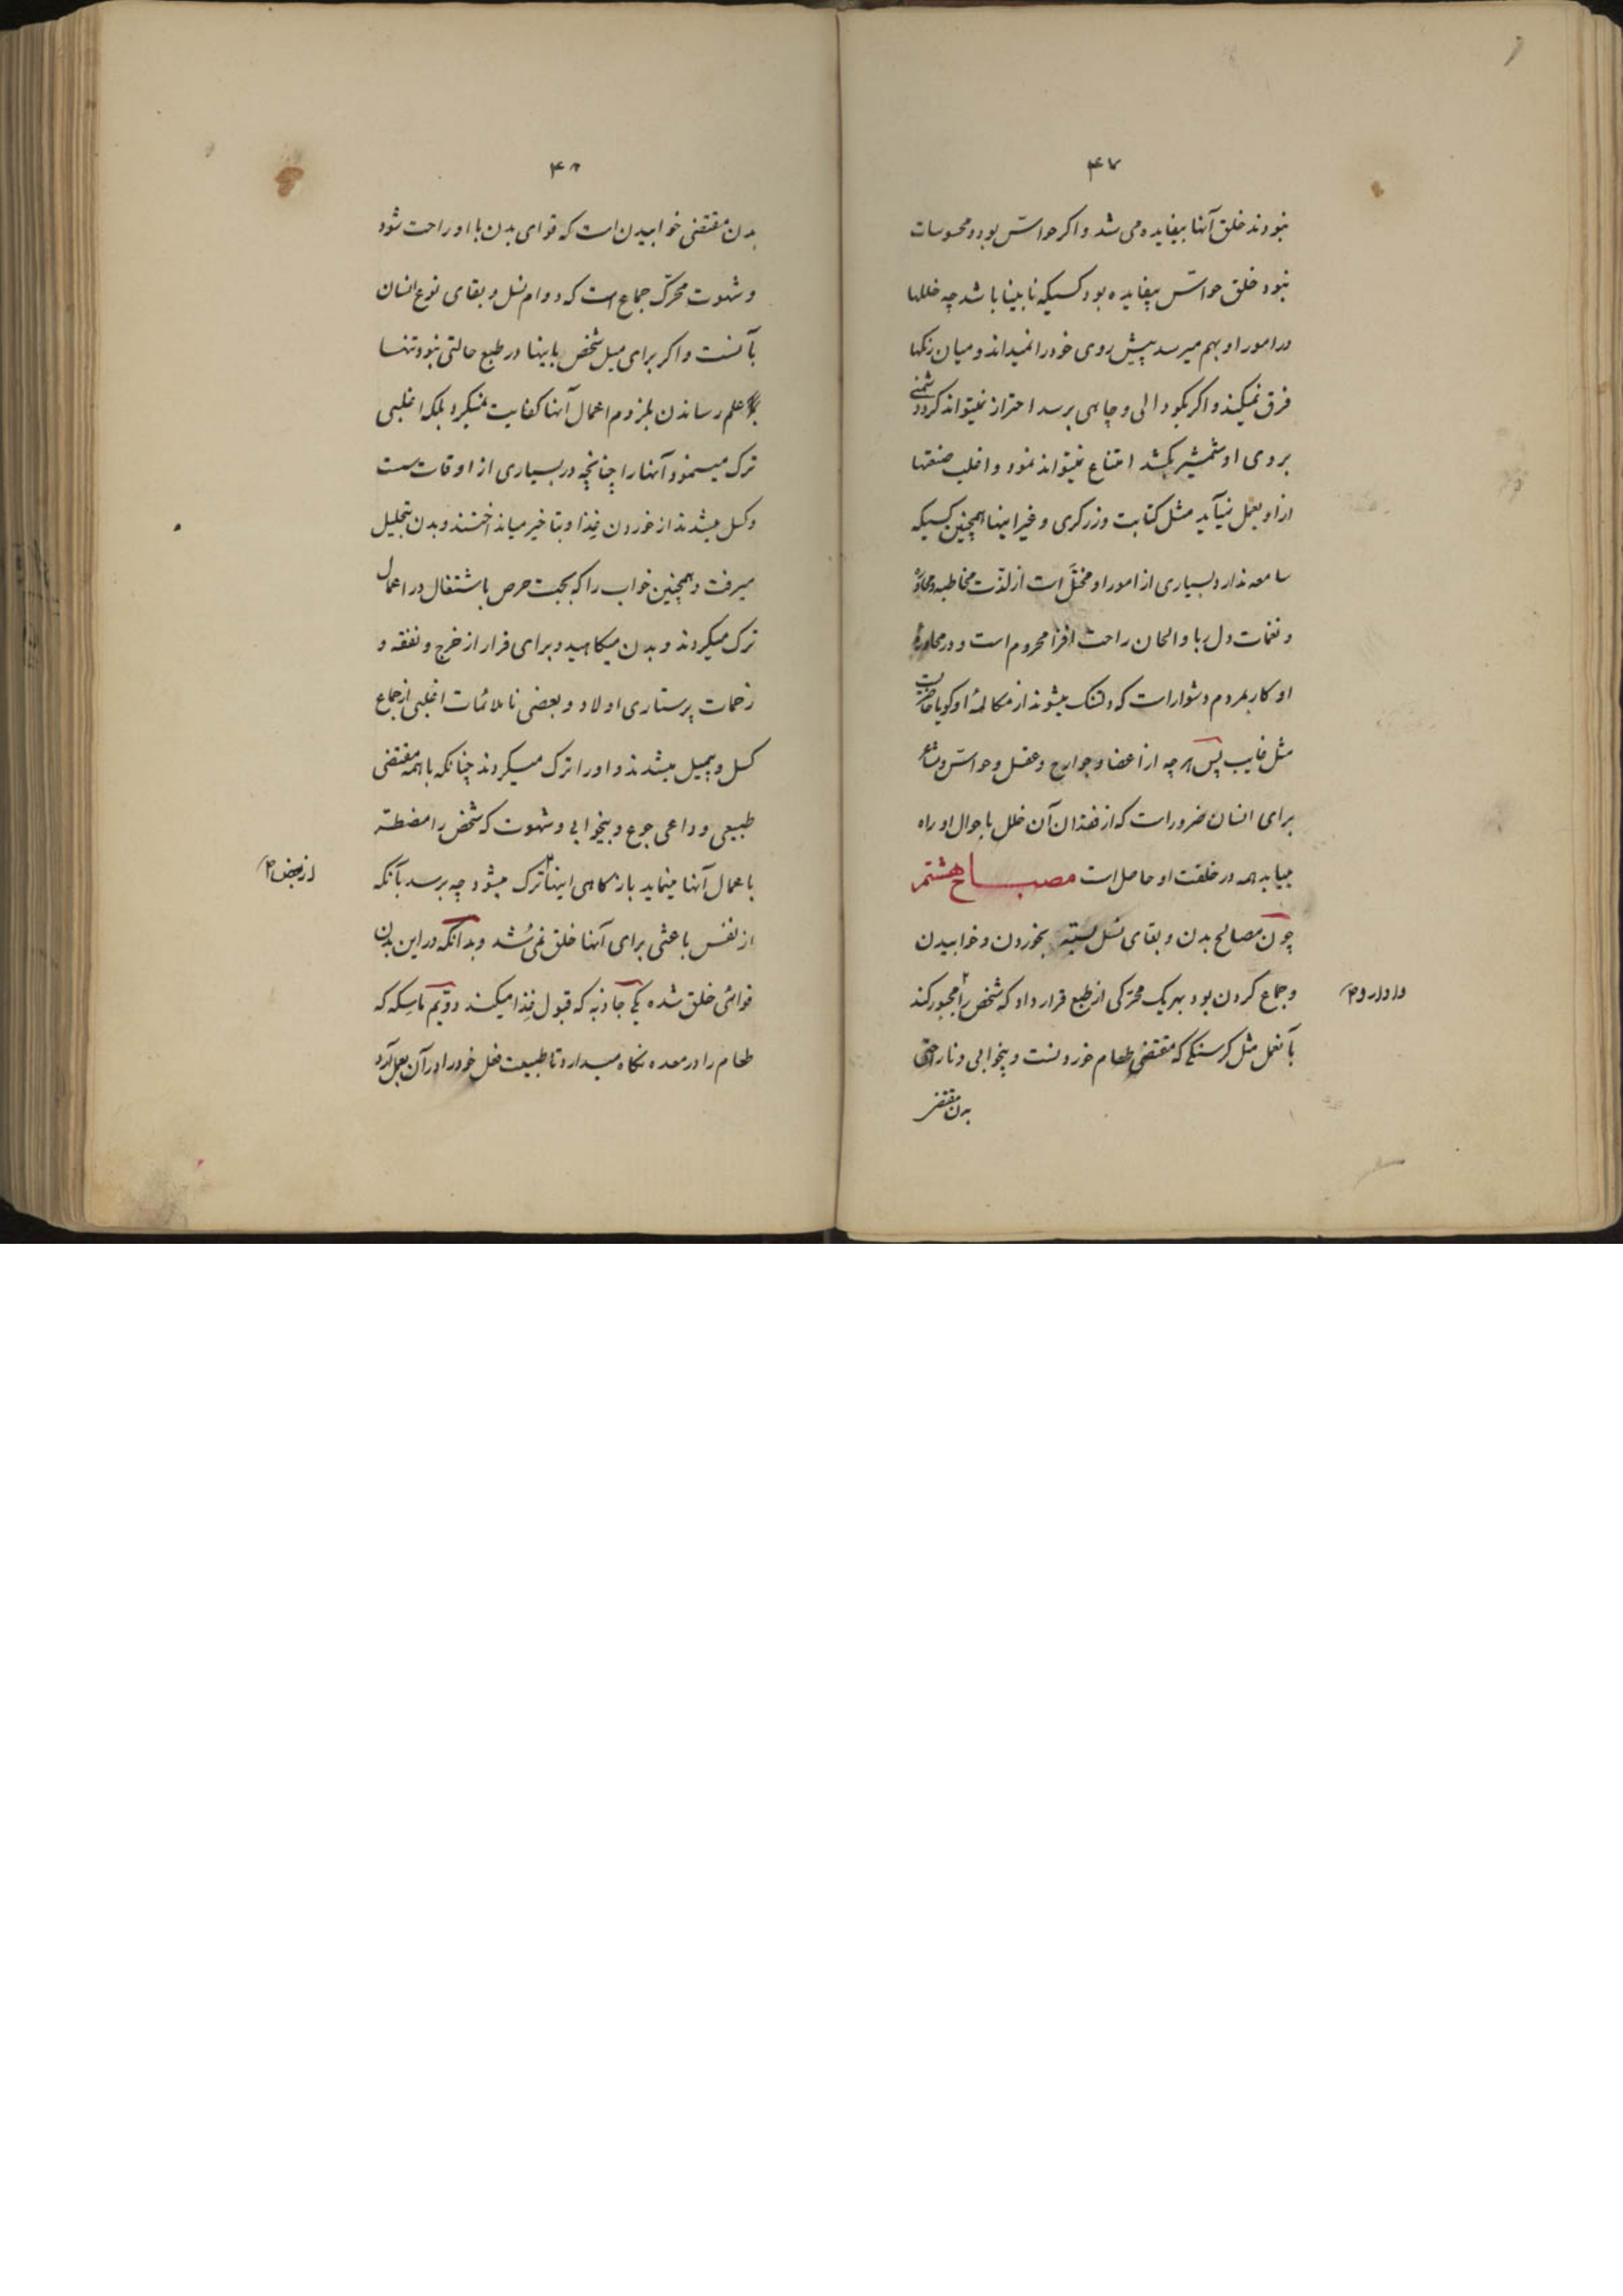 ۴۷
نبودند خلق آنها بیفایده می شد و اکر حواسّ بود و محسوسات
نبود خلق حواسّ بیفایده بود کسیکه نابینا باشد چه خللها
در امور او بهم میرسد پیش روی خود را نمیداند و میان رنکها
فرق نمیکند و اکر بکودالی و چاهی برسد احتراز نمیتواند کرد و دشمنی
بروی او شمشیر بکشد امتناع نمیتواند نمود و اغلب صنعتها
از او بعمل نیآید مثل کتابت و زرکری و غیر اینها همچنین کسیکه
سامعه ندارد بسیاری از امور او مختلّ است از لذّت مخاطبه و محاوره
و نغمات دل ربا و الحان راحت افزا محروم است و در محاورهٔ
او کار بمردم دشوار است که دلتنک میشوند از مکالمهٔ او کویا حاضریست
مثل غایب پس هر چه از اعضا و جوارح و عقل و حواسّ و مشاعر
برای انسان ضرور است که از فقدان آن خلل باحوال او راه
مییابد همه در خلقت او حاصل است مصباح هشتم
چون مصالح بدن و بقای نسل بسته بخوردن و خوابیدن
و جماع کردن بود بهر یک محرّکی از طبع قرار داد که شخص را مجبور کند
بآنعمل مثل کرسنکی که مقتضی طعام خوردنست و بیخوابی و ناراحتی
بدن مقتضی
۴۸
بدن مقتضی خوابیدن است که قوای بدن باو راحت شود
و شهوت محرّک جماع است که دوام نسل و بقای نوع انسان
بآنست و اکر برای میل شخص باینها در طبع حالتی نبود تنها
علم رساندن بلزوم اعمال آنها کفایت نمیکرد بلکه اغلبی
ترک مینمود آنها را چنانچه در بسیاری از اوقات سست
و کسل میشدند از خوردن غذا و بتاخیر میانداختند و بدن بتحلیل
میرفت و همچنین خواب را که بجهت حرص باشتغال در اعمال
ترک میکردند و بدن میکاهید و برای فرار از خرج و نفقه و
زحمات پرستاری اولاد و بعضی ناملائمات اغلبی از جماع
کسل و بیمیل میشدند و او را ترک میکردند چنانکه با همه مقتضی
طبیعی و داعی جوع و بیخوابی و شهوت که شخص را مضطرّ
باعمال آنها مینماید باز کاهی اینها ترک میشود چه برسد بآنکه
از نفس باعثی برای آنها خلق نمی شد و بدانکه در این بدن
قوائی خلق شده یکی جاذبه که قبول غذا میکند دوّیم ماسکه که
طعام را در معده نکاه میدارد تا طبیعت فعل خود را در آن بعمل آورد